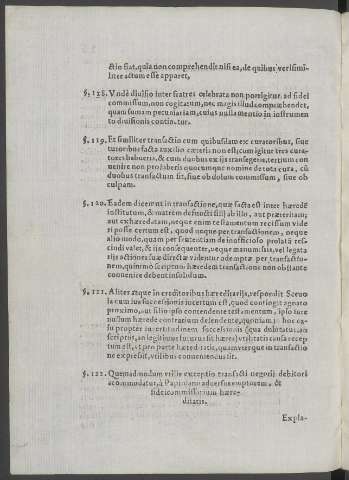 ctio fiat, quia non comprehendit nisi ea, de quibus verisimi-
liter actum esse apparet,
§. 118. Vndè diuisio inter fratres celebrata non porrigitur ad fidei
commissum, non cogitatum, nec magis illud comprehendet,
quam sumam pecuniariam, cuius nulla mentio in instrumen
to diuisionis continetur.
§. 119. Et similiter transactio cum quibusdam ex curatoribus, siue
tutoribus facta auxilio cæteris non est; cum igitur tres cura-
tores habueris, & cum duobus ex ijs transegeris, tertium con
uenire non prohiberis quocumque nomine de tota cura, cũ
duobus transactum sit, siue ob dolum commissum, siue ob
culpam.
§. 120. Eadem dicemus in transactione, quæ facta est inter hæredẽ
institutum, & matrem defuncti filij ab illo, aut præteritam;
aut exhæredatam, neque enim testamentum recissum vide
ri posse certum est, quod neque per transactionem, neque
alio modo, quam per sententiam de inofficioso prolatã res-
cindi valet, & iis consequenter, neque manumissis, vel legata
rijs actiones suæ directæ videntur ademptæ per transactio-
nem, quin imò scriptum hæredem transactione non obstante
conuenire debent insolidum.
§. 121. Aliter atque in creditoribus hæreditarijs, respondit Scæuo
la cum ius successionis incertum est, quod contingit agnato
proximo, aut filio ipso contendente testamentum, ipso iure
nullum hærede contrarium defendente, quoniam in hoc ca-
su propter incertitudinem successionis (qua dubitatur, an
scriptus, an legitimus futurus sit hæres) vtilitatis causa recep
tum est, vt pro parte hæreditatis, quam vterque in transactio
ne expresit, vtilibus conueniendus sit.
§. 122. Quemadmodum vtilis exceptio transacti negotij debitori
acommodatur, à Papiniano aduersus emptorem, &
fideicommissarium hære-
ditatis.
Expla-